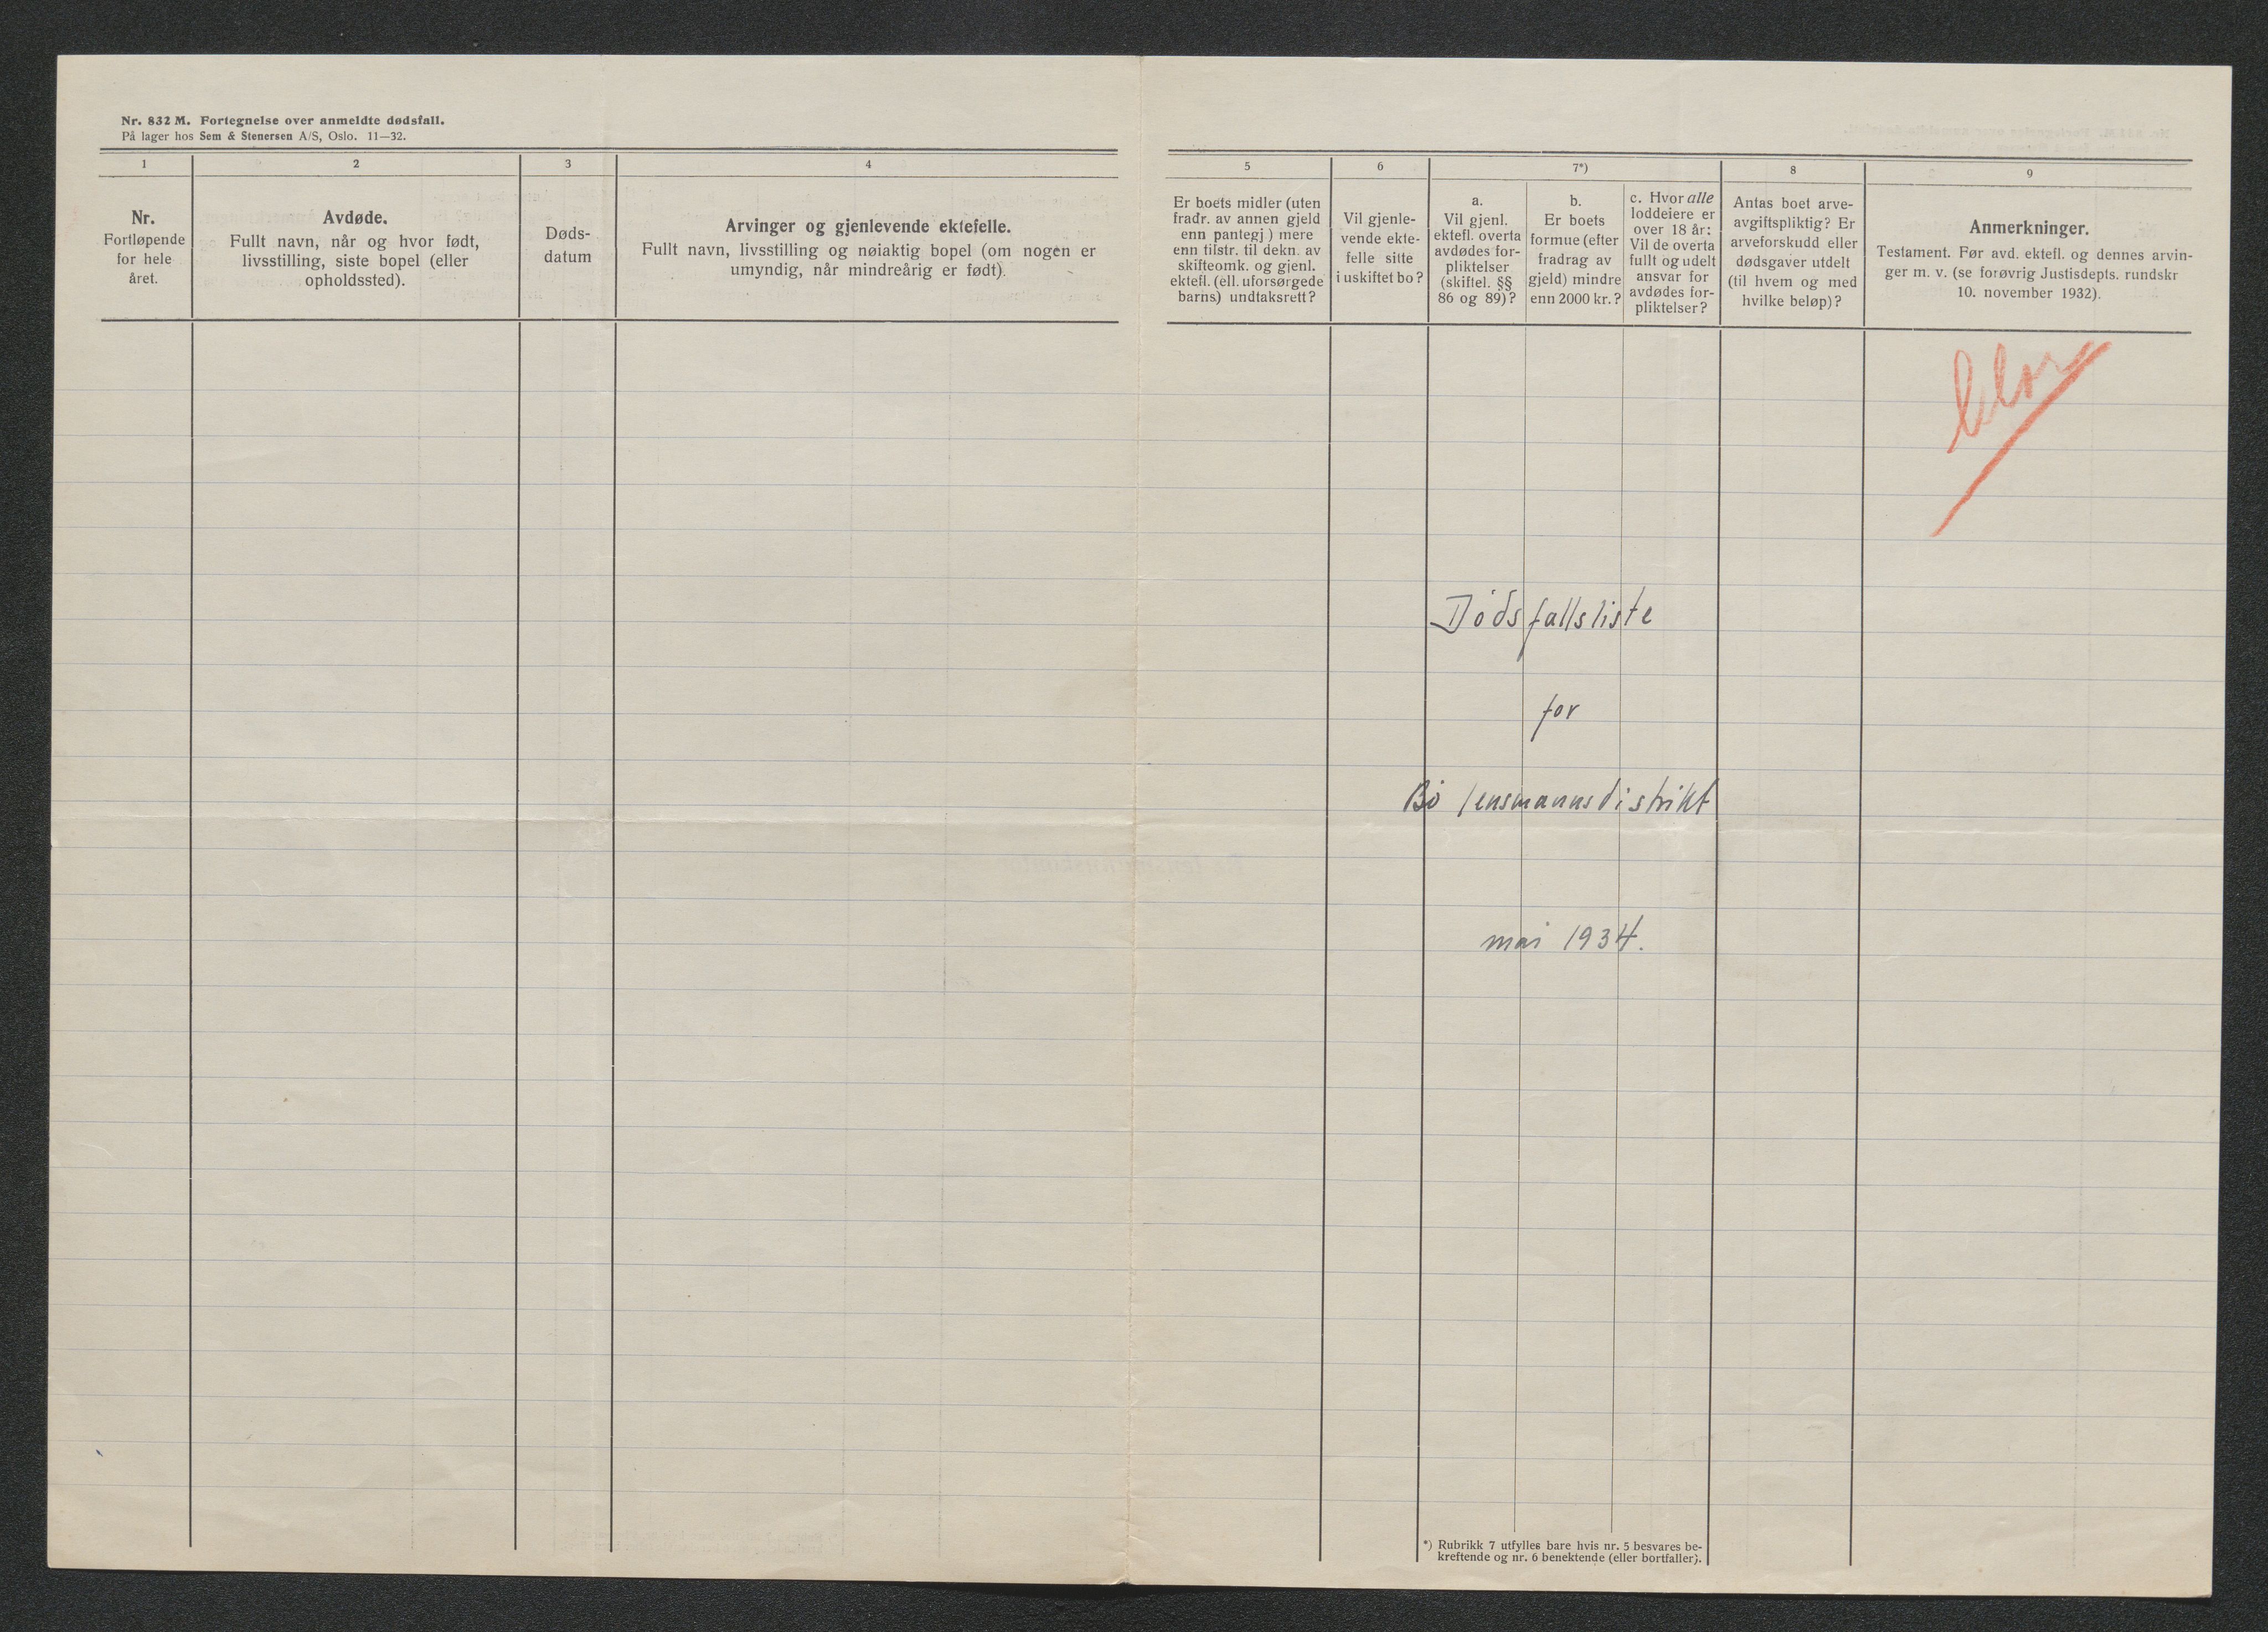 Nr. 832 M. Fortegnelse over anmeldte dødsfall.
På lager hos Sem & Stenersen A/S, Oslo. 11—32.
1
Nr.
Fortløpende
for hele
året.
2
Avdøde.
Fullt navn, når og hvor født,
livsstilling, siste bopel (eller
opholdssted).
3
Døds-
datum
4
Arvinger og gjenlevende ektefelle.
Fullt navn, livsstilling og nøiaktig bopel (om nogen er
umyndig, når mindreårig er født).
5
Er boets midler (uten
fradr. av annen gjeld
enn pantegj) mere
enn tilstr. til dekn. av
skifteomk. og gjenl.
ektefl. (ell. uforsørgede
barns) undtaksrett?
6
Vil gjenle-
vende ekte-
felle sitte
i uskiftet bo?
7*)
a.
Vil gjenl.
ektefl. overta
avdødes for-
pliktelser
(skiftel. §§
86 og 89)?
b.
Er boets
formue (efter
fradrag av
gjeld) mindre
enn 2000 kr.?
c. Hvor alle
loddeiere er
over 18 år:
Vil de overta
fullt og udelt
ansvar for
avdødes for-
pliktelser?
8
Antas boet arve-
avgiftspliktig? Er
arveforskudd eller
dødsgaver utdelt
(til hvem og med
hvilke beløp)?
9
Anmerkninger.
Testament. Før avd. ektefl. og dennes arvin-
ger m. v. (se forøvrig Justisdepts. rundskr
10. november 1932).
Dödsfallsliste
for
Bö lensmannsdistrikt
mai 1934.
*) Rubrikk 7 utfylles bare hvis nr. 5 besvares be-
kreftende og nr. 6 benektende (eller bortfaller).